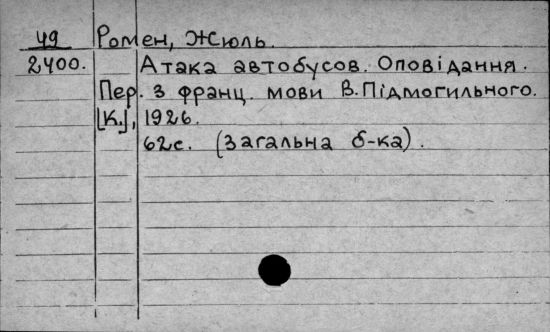 49 Ромен, Жюль.
2400. Атака автобусов. Оповідання.
Пер. з франц. мови В.Підмогильного.
[К.], 1926.
62с. (Загальна б-ка).